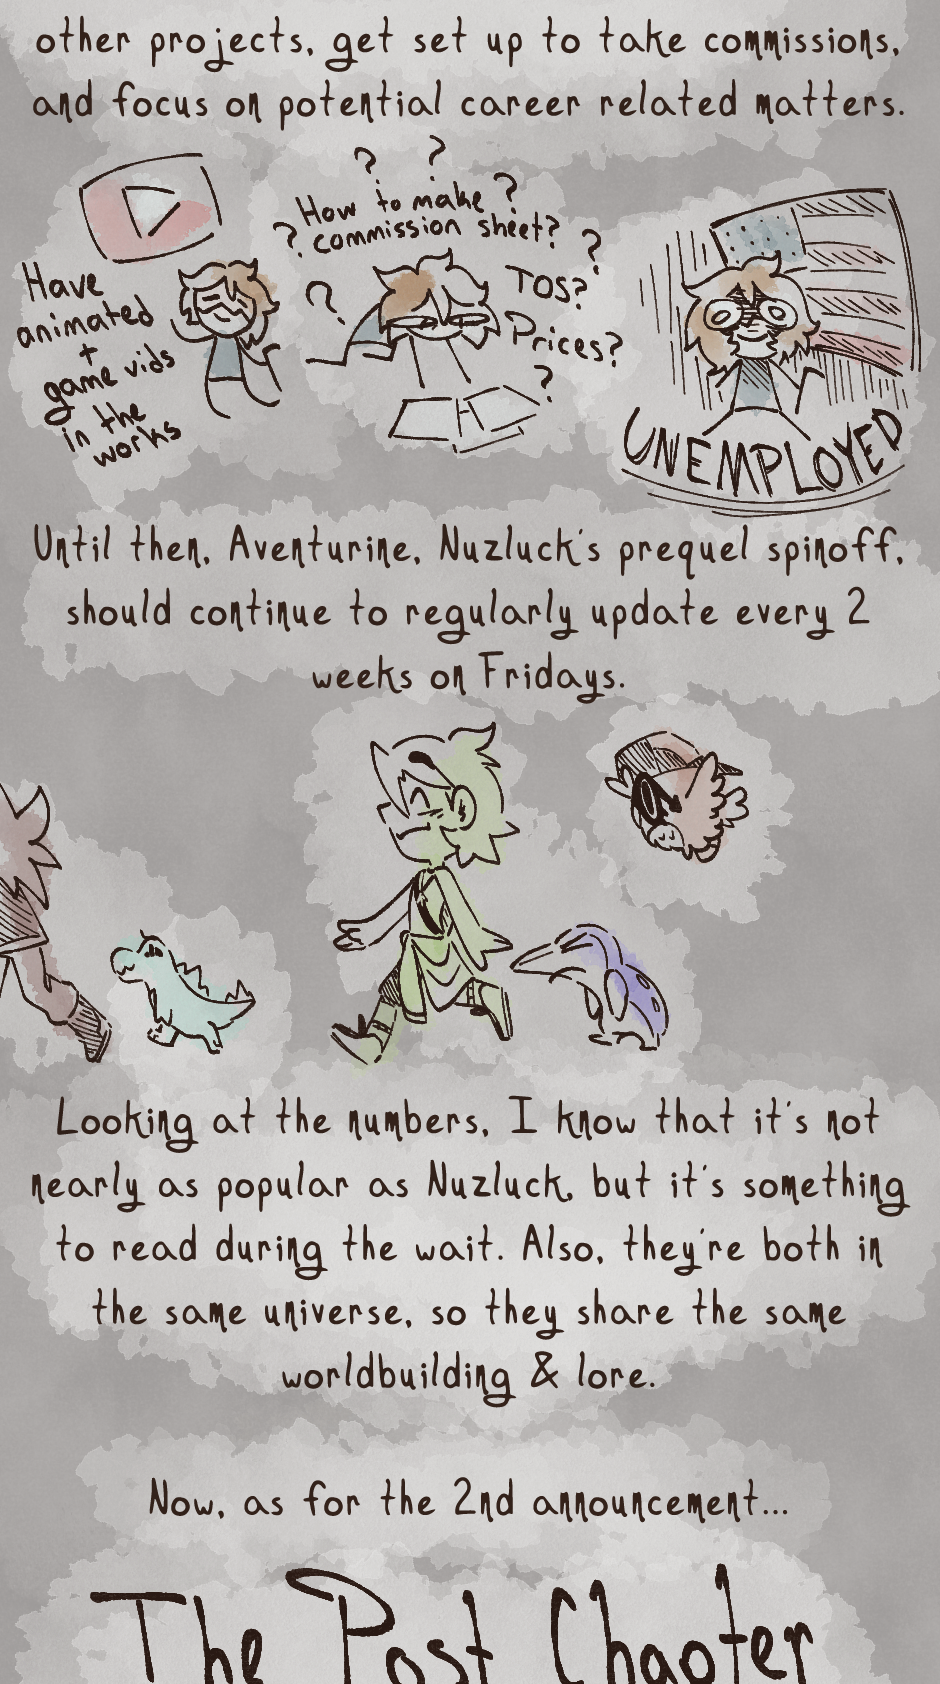 other projects, get set up to take commissions,
and focus on potential career related matters.
Have
animated
+
game vids
in the
works
? ?
How to make ?
? commission sheet? ?
? TOS?
Prices?
?
UNEMPLOYED
Until then, Aventurine, Nuzluck's prequel spinoff,
should continue to regularly update every 2
weeks on Fridays.
Looking at the numbers, I know that it's not
nearly as popular as Nuzluck, but it's something
to read during the wait. Also, they're both in
the same universe, so they share the same
worldbuilding & lore.
Now, as for the 2nd announcement...
The Post Chapter